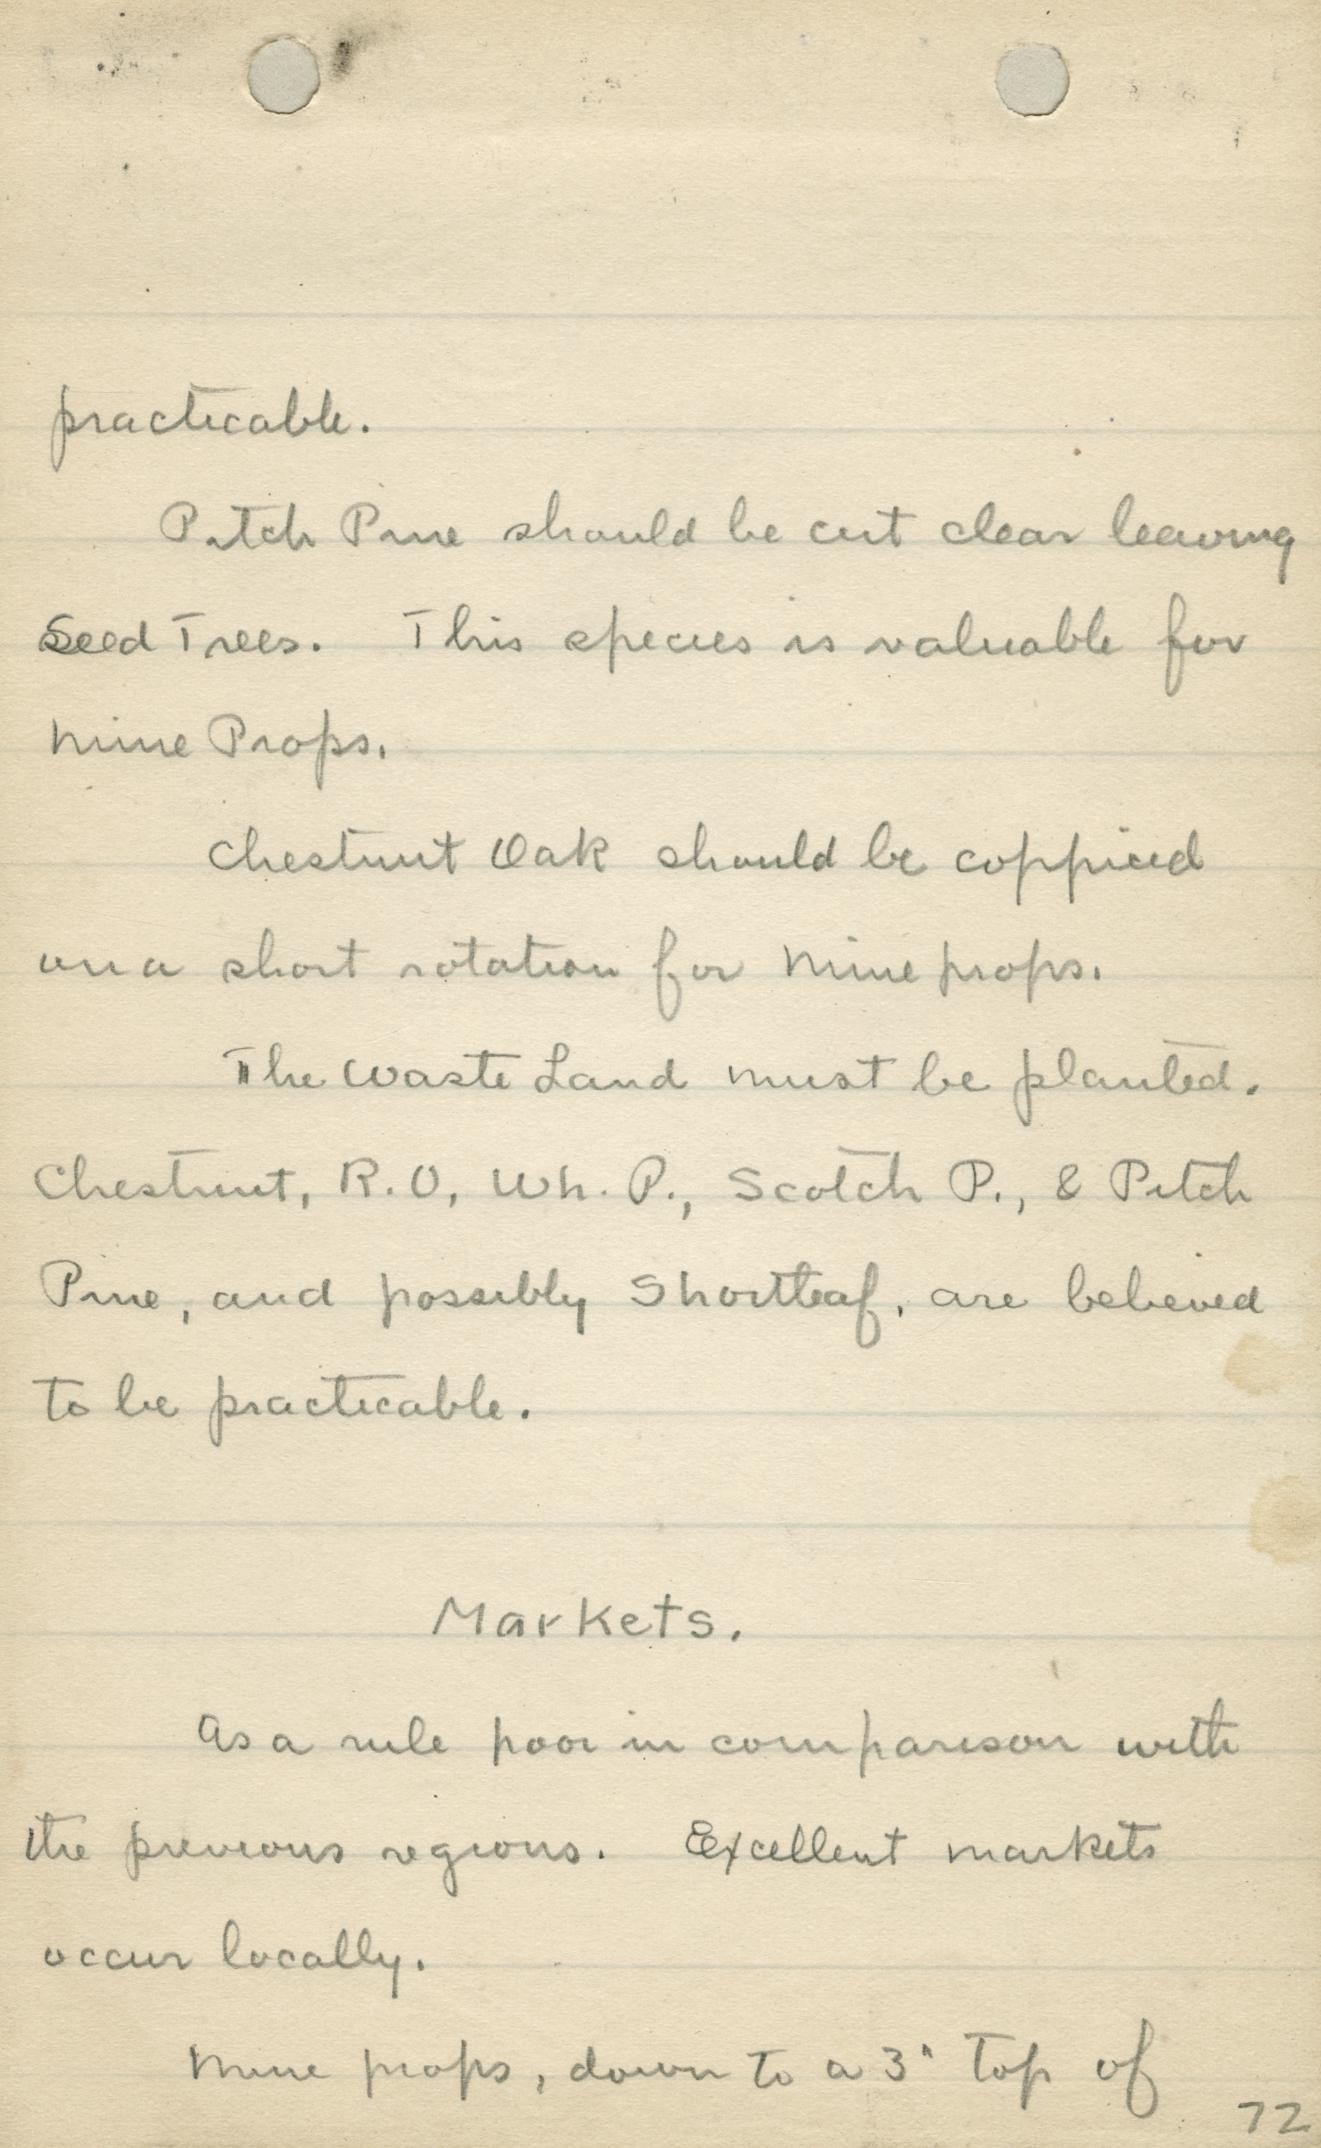 practicable.
Pitch Pine should be cut clear leaving
Seed Trees. This species is valuable for
Mine Props.
Chestnut Oak should be coppiced
on a short rotation for Mine props.
The Waste Land must be planted.
Chestnut, R.O, Wh. P., Scotch P., & Pitch
Pine, and possibly Shortleaf, are believed
to be practicable.
Markets.
As a rule poor in comparison with
the previous regions. Excellent markets
occur locally.
Mine props, down to a 3" top of
72